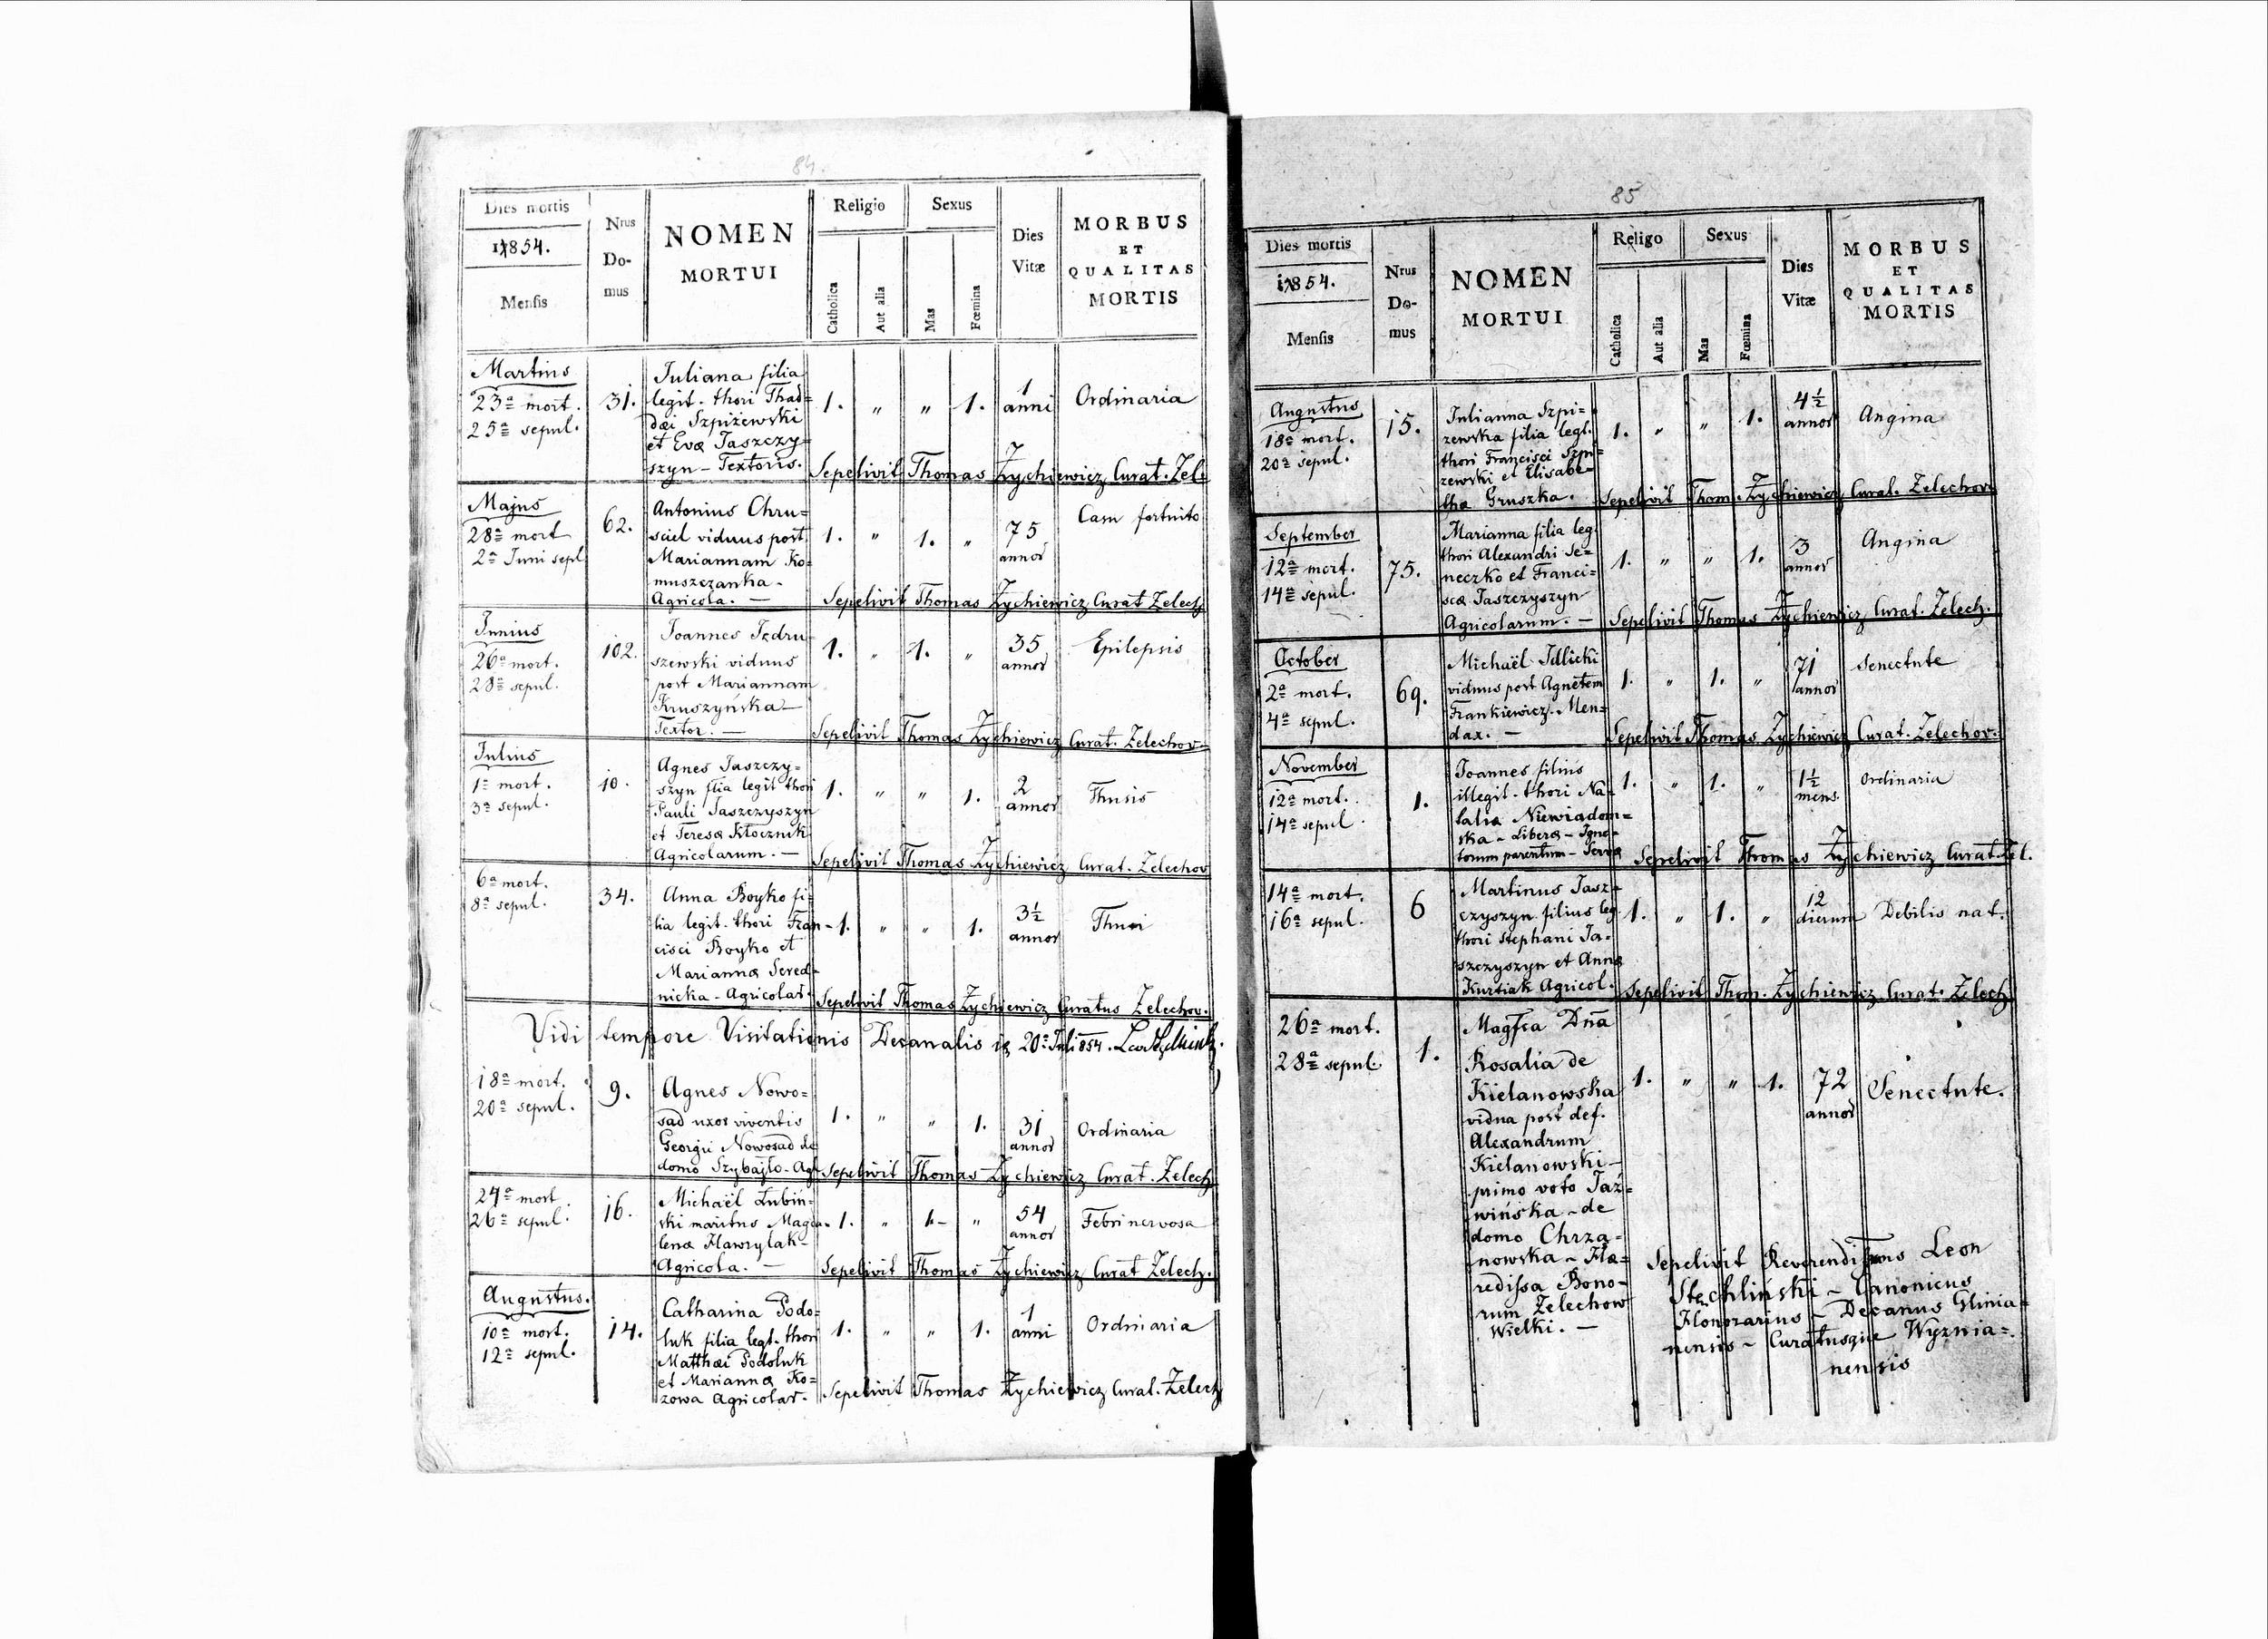 84.
Dies mortis
1854.
Mensis
Nrus
Do-
mus
NOMEN
MORTUI
Religio
Catholica
Aut alia
Sexus
Mas
Fœmina
Dies
Vitæ
MORBUS
ET
QUALITAS
MORTIS
Martius
23a mort.
25a sepul.
31.
Juliana filia
legit. thori Thad=
dæi Szpiżewski
et Evæ Jaszczy=
szyn - Textoris.
1. " " 1.
1
anni
Ordinaria
Sepelivit Thomas Żychiewicz Curat. Żel.
Majus
28a mort
2a Juni sepl
62.
Antonius Chru=
sciel viduus post
Mariannam Ko=
muszczanka -
Agricola. —
1. " 1. "
75
annor
Casu fortuito
Sepelivit Thomas Żychiewicz Curat Żelech
Junius
26a mort.
28a sepul.
102.
Joannes Jędru
szewski viduus
post Mariannam
Kruszyńska —
Textor. —
1. " 1. "
35
annor
Epilepsis
Sepelivit Thomas Żychiewicz Curat. Żelechov.
Julius
1a mort.
3a sepul.
10.
Agnes Jaszczy=
szyn flia legit thori
Pauli Jaszczyszyn
et Teresæ Kłocznik
Agricolarum. —
1. " " 1.
2
annor
Thusis
Sepelivit Thomas Żychiewicz Curat. Żelechov
6a mort.
8a sepul.
34.
Anna Boyko fi=
lia legit. thori Fran -
cisci Boyko et
Mariannæ Sered=
nicka - Agricolar.
1. " " 1.
3½
annor
Thusi
Sepelivit Thomas Żychiewicz Curatus Żelechov.
Vidi tempore Visitationis Decanalis 20a Juli 854.
18a mort.
20a sepul.
9.
Agnes Nowo=
sad uxor viventis
Georgii Nowosad de
domo Szybajło - Agr
1. " " 1.
31
annor
Ordinaria
Sepelivit Thomas Żychiewicz Curat. Żelech.
24a mort
26a sepul.
16.
Michaël Łubiń=
ski maritus Magda-
lenæ Hawrylak -
Agricola. —
1. " 1- "
54
annor
Febri nervosa
Sepelivit Thomas Żychiewicz Curat Żelech.
Augustus.
10a mort.
12a sepul.
14.
Catharina Podo=
luk filia legt. thori
Matthæi Podoluk
et Mariannæ Ko=
zowa Agricolar.
1. " " 1.
1
anni
Ordinaria
Sepelivit Thomas Żychiewicz Curat. Żelech
85
Dies mortis
1854.
Mensis
Nrus
Do-
mus
NOMEN
MORTUI
Religo
Catholica
Aut alia
Sexus
Mas
Fœmina
Dies
Vitæ
MORBUS
ET
QUALITAS
MORTIS
Augustus
18a mort.
20a sepul.
15.
Julianna Szpi=
zewska filia legt.
thori Francisci Szpi=
zewski et Elisabe=
thæ Gruszka.
1. " " 1.
4½
annor
Angina
Sepelivit Thom. Żychiewicz Curat. Żelechov.
September
12a mort.
14a sepul.
75.
Marianna filia leg.
thori Alexandri Se=
neczko et Franci=
scæ Jaszczyszyn
Agricolarum. —
1. " " 1.
3
annor
Angina
Sepelivit Thomas Żychiewicz Curat. Żelech.
October
2a mort.
4a sepul.
69.
Michaël Idlicki
viduus post Agnetem
Frankiewicz. Men=
dax. —
1. " 1. "
71
annor
Senectute
Sepelivit Thomas Żychiewicz Curat. Żelechov.
November
12a mort.
14a sepul
1.
Joannes filius
illegit. thori Na=
taliæ Niewiadom=
ska - Liberæ - Igno-
torum parentum - Servæ
1. " 1. "
1½
mens.
Ordinaria
Sepelivit Thomas Żychiewicz Curat. Żel.
14a mort.
16a sepul.
6
Martinus Jasz=
czyszyn filius leg.
thori Stephani Ja=
szczyszyn et Annæ
Kurtiak Agricol.
1. " 1. "
12
dierum
Debilis nat.
Sepelivit Thom. Żychiewicz Curat. Żelech
26a mort.
28a sepul.
1.
Magfca Dna
Rosalia de
Kielanowska
vidua post def.
Alexandrum
Kielanowski —
primo voto Jaź=
wińska - de
domo Chrza=
nowska - Hæ=
redissa Bono=
rum Żelechow
Wielki. —
1. " " 1.
72
annor
Senectute.
Sepelivit Reverendissimus Leon
Stechliński - Canonicus
Honorarius - Decanus Glinia=
nensis - Curatusque Wyznia=
nensis